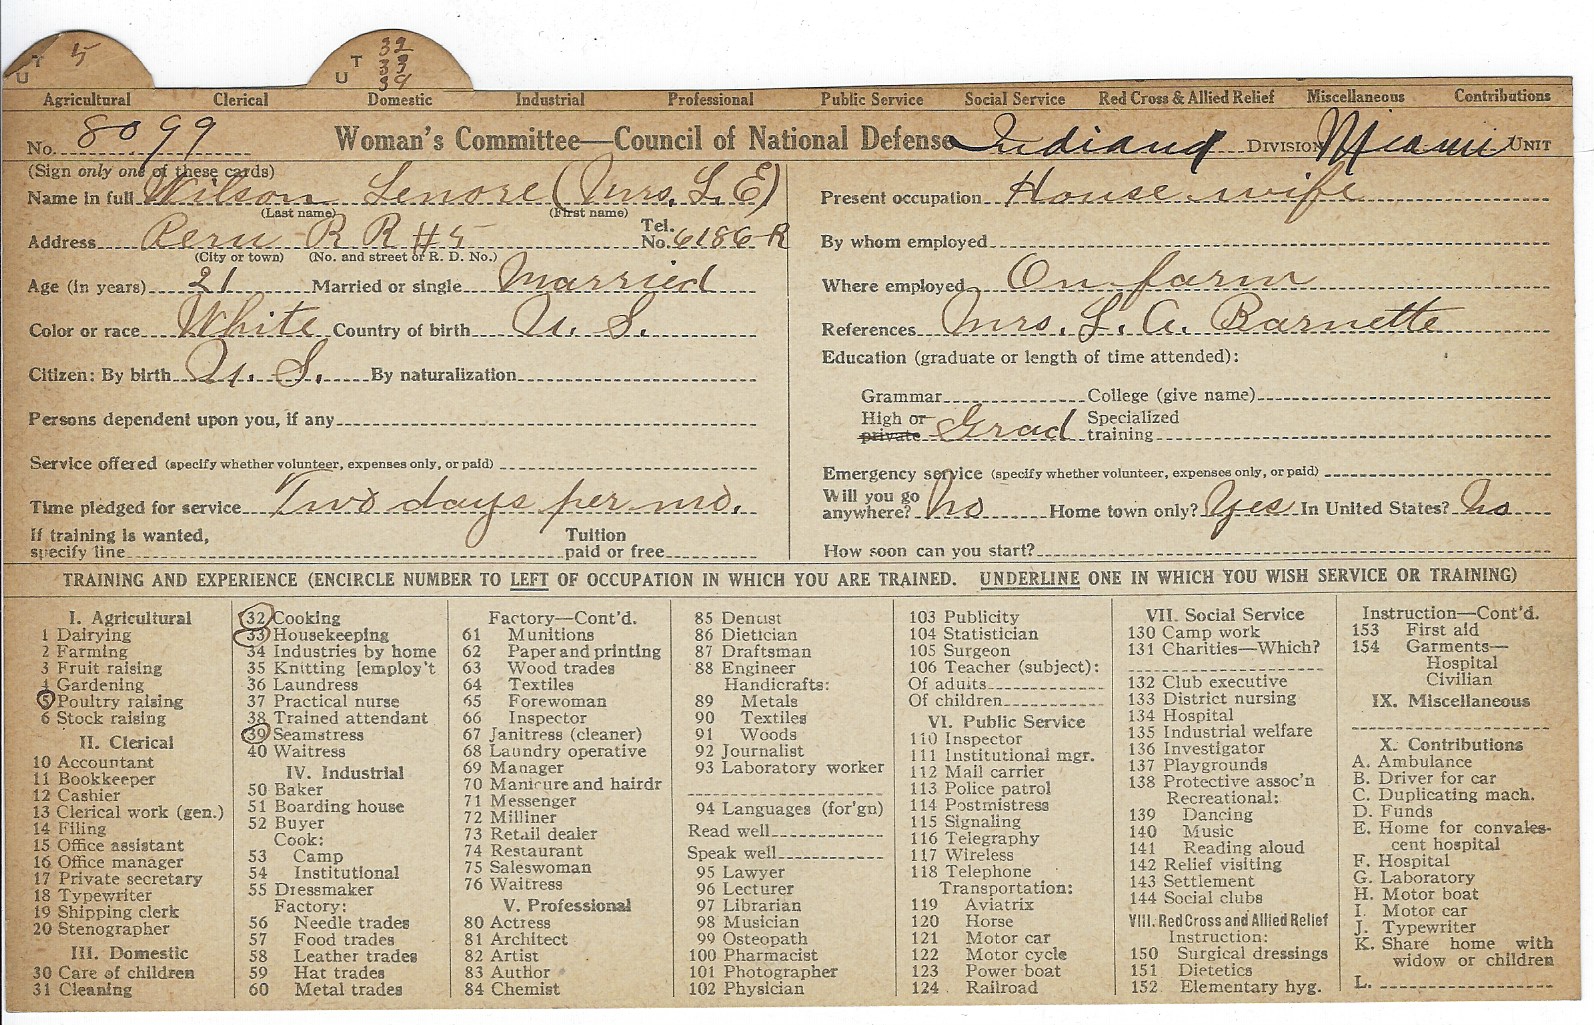 T 5
U
T 32
33
U 39
Agricultural Clerical Domestic Industrial Professional Public Service Social Service Red Cross & Allied Relief Miscellaneous Contributions
No. 8099 Woman's Committee—Council of National Defense Indiana DIVISION Miami UNIT
(Sign only one of these cards)
Name in full Wilson Lenore (Mrs. L. E)
(Last name) (First name)
Address Peru R R #5 Tel. No. 6186-R
(City or town) (No. and street or R. D. No.)
Age (in years) 21 Married or single Married
Color or race White Country of birth U. S.
Citizen: By birth U. S. By naturalization
Persons dependent upon you, if any
Service offered (specify whether volunteer, expenses only, or paid)
Time pledged for service Two days per mo.
If training is wanted, Tuition
specify line paid or free
Present occupation House wife
By whom employed
Where employed On farm
References Mrs. L. A. Barnette
Education (graduate or length of time attended):
Grammar College (give name)
High or Grad Specialized
private training
Emergency service (specify whether volunteer, expenses only, or paid)
Will you go
anywhere? No Home town only? Yes In United States? No
How soon can you start?
TRAINING AND EXPERIENCE (ENCIRCLE NUMBER TO LEFT OF OCCUPATION IN WHICH YOU ARE TRAINED. UNDERLINE ONE IN WHICH YOU WISH SERVICE OR TRAINING)
I. Agricultural
1 Dairying
2 Farming
3 Fruit raising
4 Gardening
5 Poultry raising
6 Stock raising
II. Clerical
10 Accountant
11 Bookkeeper
12 Cashier
13 Clerical work (gen.)
14 Filing
15 Office assistant
16 Office manager
17 Private secretary
18 Typewriter
19 Shipping clerk
20 Stenographer
III. Domestic
30 Care of children
31 Cleaning
32 Cooking
33 Housekeeping
34 Industries by home
35 Knitting [employ't
36 Laundress
37 Practical nurse
38 Trained attendant
39 Seamstress
40 Waitress
IV. Industrial
50 Baker
51 Boarding house
52 Buyer
Cook:
53 Camp
54 Institutional
55 Dressmaker
Factory:
56 Needle trades
57 Food trades
58 Leather trades
59 Hat trades
60 Metal trades
Factory—Cont'd.
61 Munitions
62 Paper and printing
63 Wood trades
64 Textiles
65 Forewoman
66 Inspector
67 Janitress (cleaner)
68 Laundry operative
69 Manager
70 Manicure and hairdr
71 Messenger
72 Milliner
73 Retail dealer
74 Restaurant
75 Saleswoman
76 Waitress
V. Professional
80 Actress
81 Architect
82 Artist
83 Author
84 Chemist
85 Dentist
86 Dietician
87 Draftsman
88 Engineer
Handicrafts:
89 Metals
90 Textiles
91 Woods
92 Journalist
93 Laboratory worker
94 Languages (for'gn)
Read well
Speak well
95 Lawyer
96 Lecturer
97 Librarian
98 Musician
99 Osteopath
100 Pharmacist
101 Photographer
102 Physician
103 Publicity
104 Statistician
105 Surgeon
106 Teacher (subject):
Of adults
Of children
VI. Public Service
110 Inspector
111 Institutional mgr.
112 Mail carrier
113 Police patrol
114 Postmistress
115 Signaling
116 Telegraphy
117 Wireless
118 Telephone
Transportation:
119 Aviatrix
120 Horse
121 Motor car
122 Motor cycle
123 Power boat
124 Railroad
VII. Social Service
130 Camp work
131 Charities—Which?
132 Club executive
133 District nursing
134 Hospital
135 Industrial welfare
136 Investigator
137 Playgrounds
138 Protective assoc'n
Recreational:
139 Dancing
140 Music
141 Reading aloud
142 Relief visiting
143 Settlement
144 Social clubs
VIII. Red Cross and Allied Relief
Instruction:
150 Surgical dressings
151 Dietetics
152 Elementary hyg.
Instruction—Cont'd.
153 First aid
154 Garments—
Hospital
Civilian
IX. Miscellaneous
X. Contributions
A. Ambulance
B. Driver for car
C. Duplicating mach.
D. Funds
E. Home for convales-
cent hospital
F. Hospital
G. Laboratory
H. Motor boat
I. Motor car
J. Typewriter
K. Share home with
widow or children
L.